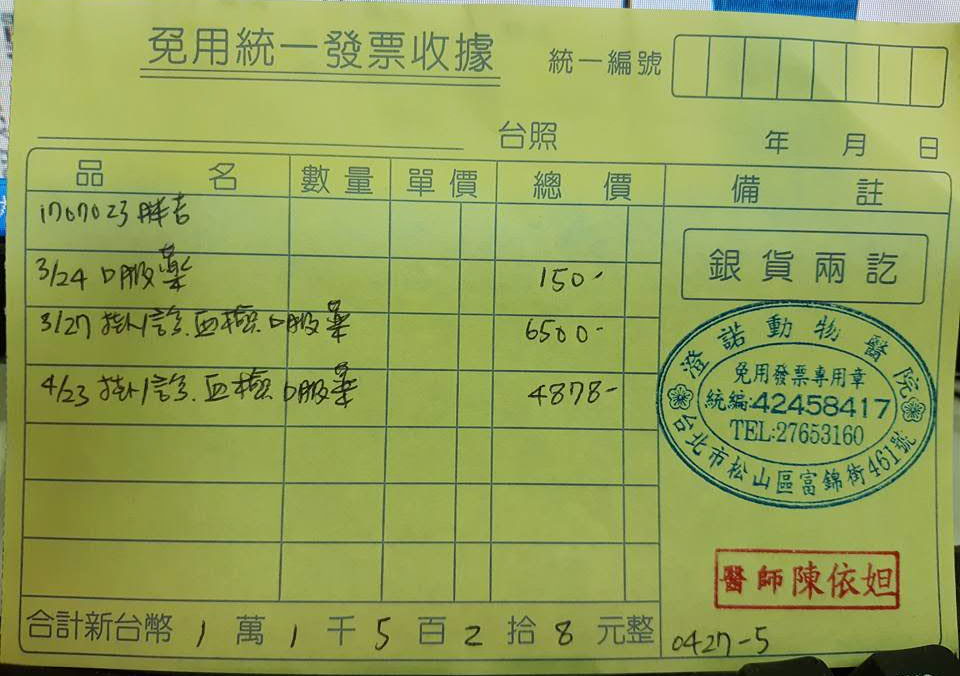 免用統一發票收據
統一編號
台照
年 月 日
品 名 數量 單價 總 價 備 註
1707023 胖吉
3/24 口服藥 150-
3/27 掛/診.血檢.口服藥 6500-
4/23 掛/診.血檢 口服藥 4878-
銀貨兩訖
澄諾動物醫院
免用發票專用章
統編:42458417
TEL:27653160
台北市松山區富錦街461號
醫師陳依妲
合計新台幣 1 萬 1 千 5 百 2 拾 8 元整
0427-5